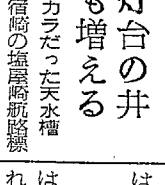 灯台の井
も増える
カラだった天水槽
宿崎の塩屋崎航路標
は
は
れ